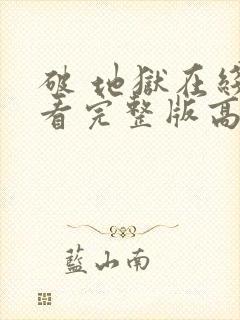 破 地獄在線
看完整版高
藍山南